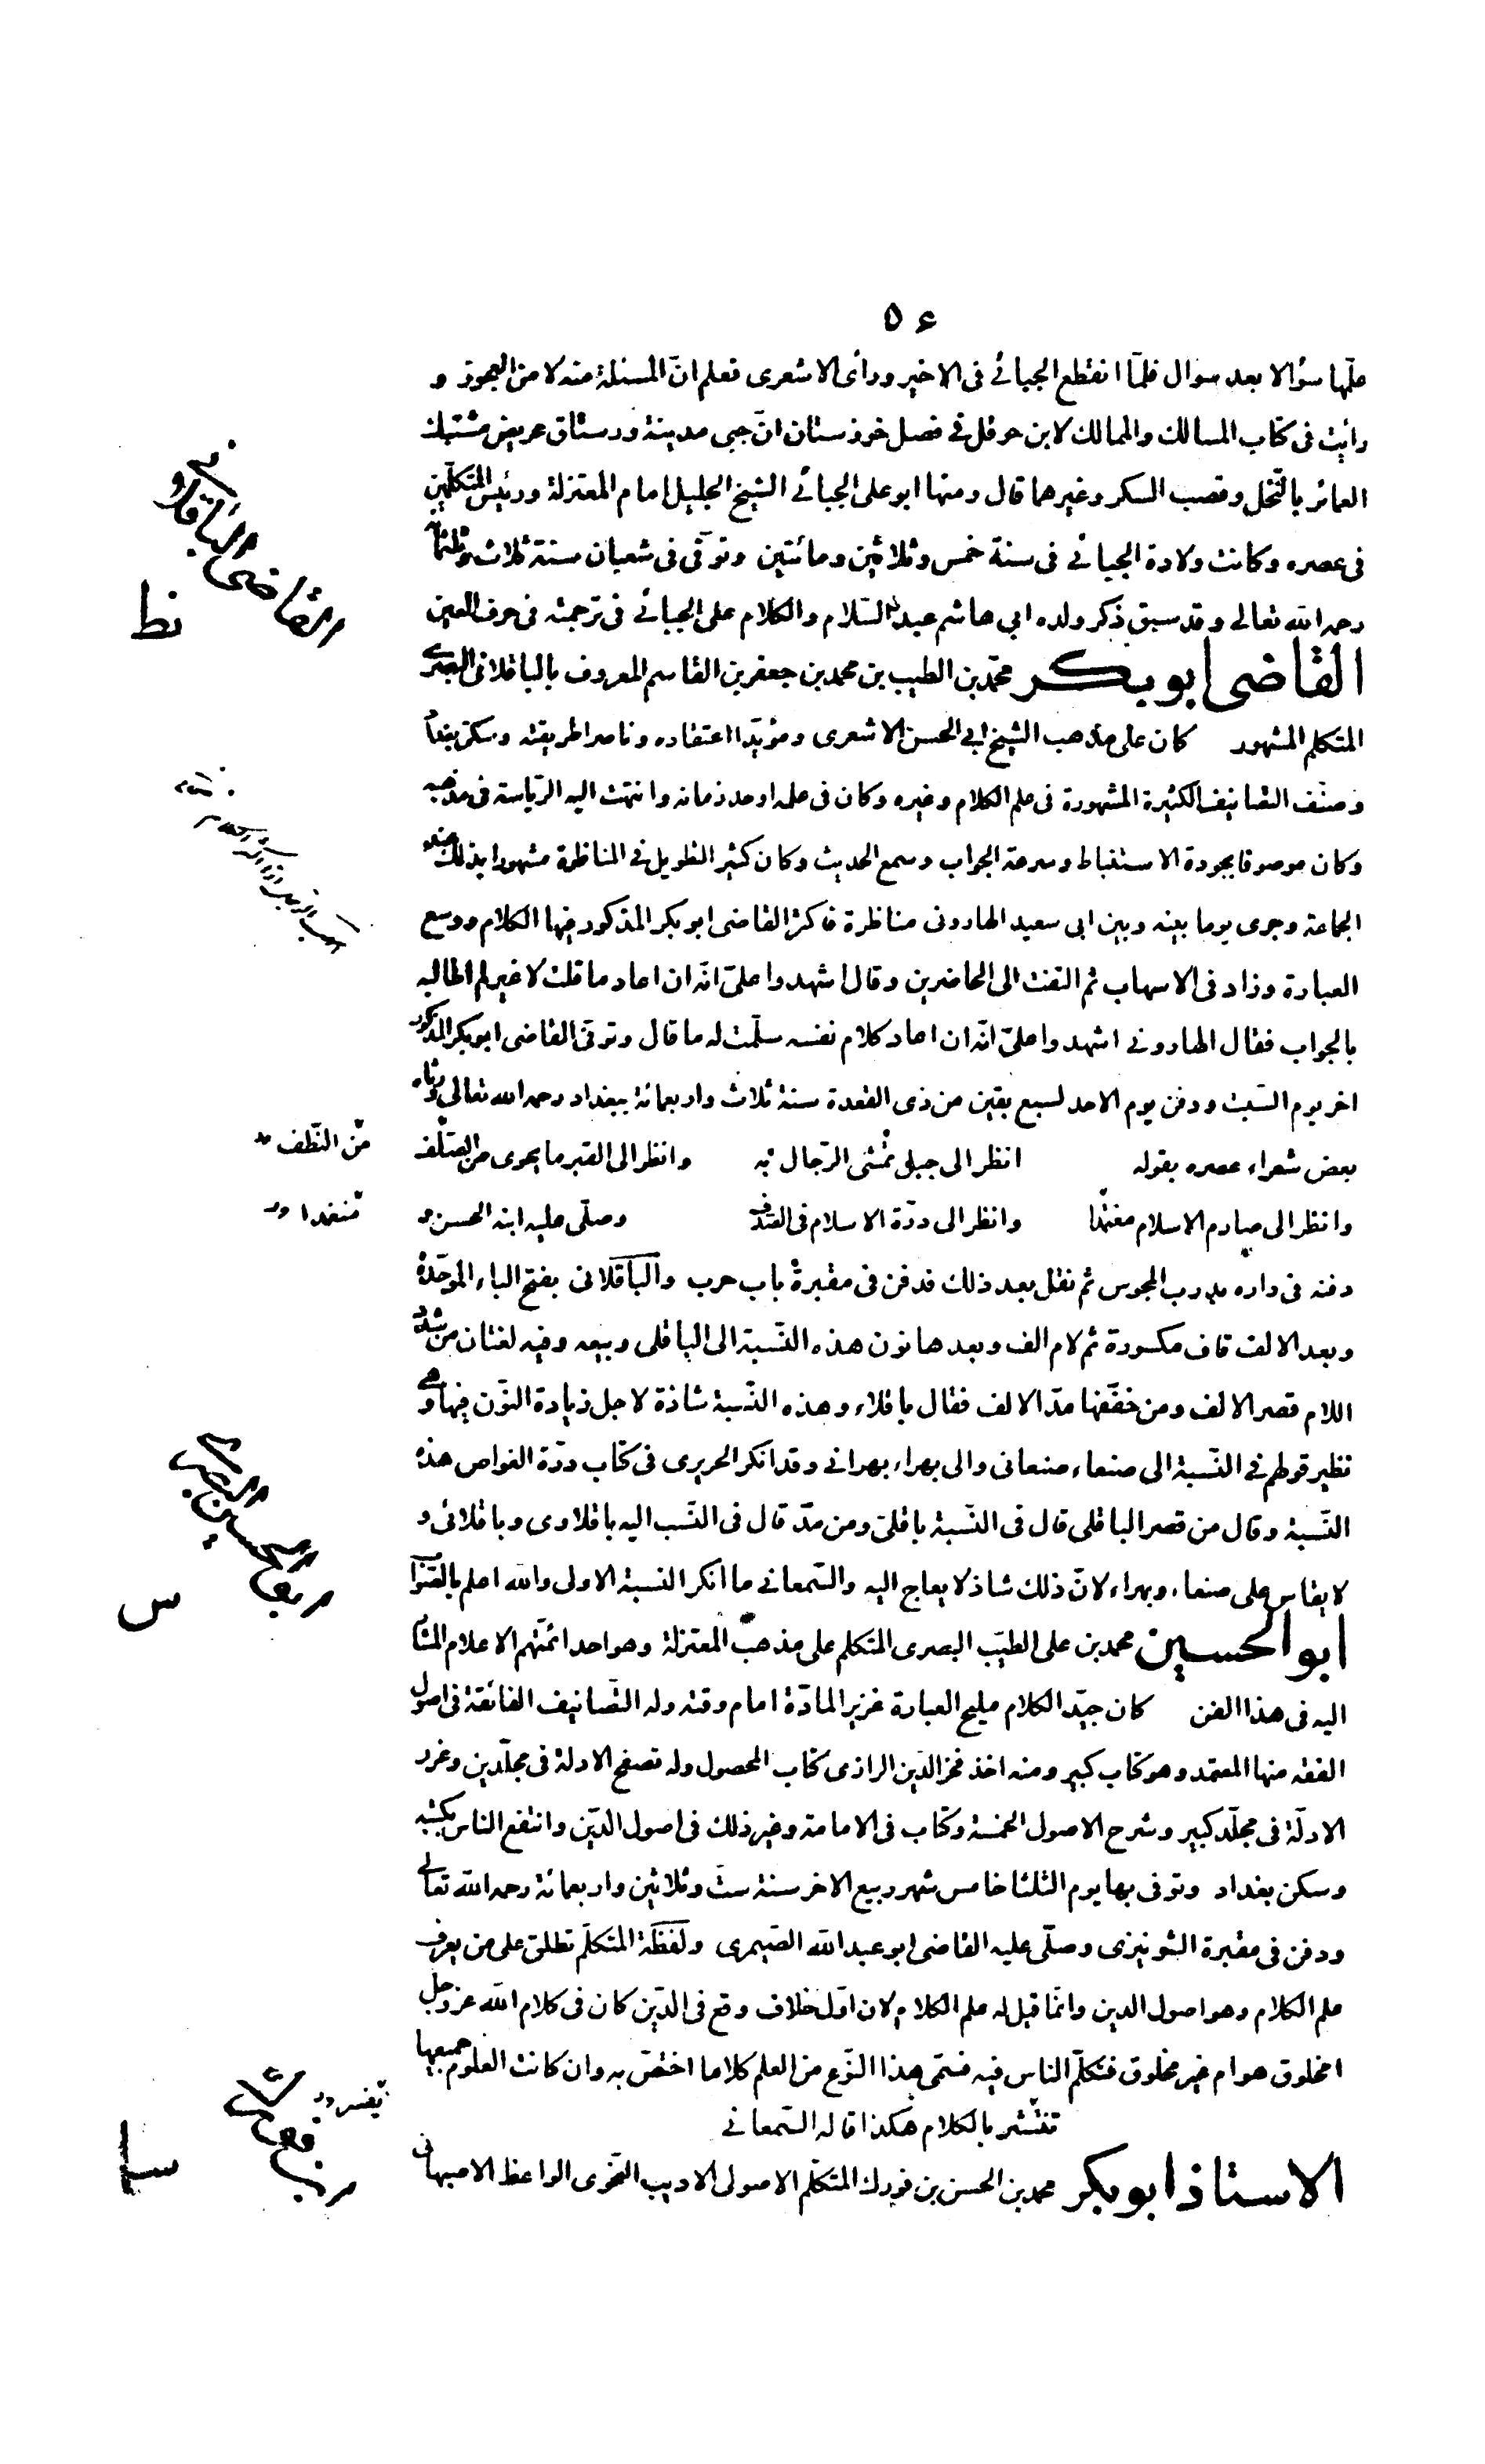 ٥٤
علّمها سؤالا بعد سؤال فلمّا انقطع الجبائے فى الاخير ورأى الاشعرى تعلم انّ المسئلة منه لا من العجوز و
رايت فى كتاب المسالك والممالك لابن حوقل فے فصل خوزستان انّ جبى مدينة ورستاق عريض مشتبك
العمائر بالنّخل وقصب السكر وغيرهما قال ومنها ابو على الجبائے الشيخ الجليل امام المعتزلة ورئيس المتكلّمين
فى عصره وكانت ولادة الجبائے فى سنة خمس وثلاثين ومائتين وتوفّى فى شعبان سنة ثلاث وثلثمائة
رحمه الله تعالے وقد سبق ذكر ولده ابي هاشم عبد السّلام والكلام على الجبائے فى ترجمته فى حرف العين
القاضى ابو بكر محمّد بن الطيب بن محمد بن جعفر بن القاسم المعروف بالباقلانى البصرى
المتكلم المشهور كان على مذهب الشيخ ابى الحسن الاشعرى ومؤيّدا اعتقاده وناصرا طريقته وسكن بغداد
وصنّف التصانيف الكثيرة المشهورة فى علم الكلام وغيره وكان فى علمه اوحد زمانه وانتهت اليه الرّياسة فى مذهبه
وكان موصوفا بجودة الاستنباط وسرعة الجواب وسمع الحديث وكان كثير التطويل فى المناظرة مشهورا بذلك عند
الجماعة وجرى يوما بينه وبين ابى سعيد الهارونى مناظرة فاكثر القاضى ابو بكر المذكور فيها الكلام ووسع
العبارة وزاد فى الاسهاب ثم التفت الى الحاضرين وقال اشهدوا علىّ انّه ان اعاد ما قلت لا غير لم اطالبه
بالجواب فقال الهارونے اشهدوا علىّ انّه ان اعاد كلام نفسه سلّمت له ما قال وتوفّى القاضى ابو بكر المذكور
اخر يوم السّبت ودفن يوم الاحد لسبع بقين من ذى القعدة سنة ثلاث واربعمائة ببغداد رحمه الله تعالى ورثاه
بعض شعراء عصره بقوله انظر الى جبل تمشى الرّجال به وانظر الى القبر ما يحوى من الصّلف
وانظر الى صارم الاسلام مغتمدا وانظر الى درّة الاسلام فى الصّدف وصلّى عليه ابنه الحسن و
دفنه فى داره بدرب المجوس ثم نقل بعد ذلك فدفن فى مقبرة باب حرب والباقلانى بفتح الباء الموحّدة
وبعد الالف قاف مكسورة ثم لام الف وبعدها نون هذه النّسبة الى الباقلى وبيعه وفيه لغتان من شدّد
اللام قصر الالف ومن خفّفها مدّ الالف فقال باقلاء وهذه النّسبة شاذة لاجل زيادة النّون فيها وهے
نظير قولهم فے النّسبة الى صنعاء صنعانى والى بهراء بهرانے وقد انكر الحريرى فى كتاب درّة الغواص هذه
النّسبة وقال من قصر الباقلى قال فى النّسبة باقلىّ ومن مدّ قال فى النّسب اليه باقلاوى وباقلائى و
لا يقاس على صنعاء وبهراء لانّ ذلك شاذ لا يعاج اليه والسّمعانے ما انكر النسبة الاولى والله اعلم بالصّواب
ابو الحسين محمد بن على الطيّب البصرى المتكلم على مذهب المعتزلة وهو احد ائمّتهم الاعلام المشار
اليه فى هذا الفن كان جيّد الكلام مليح العبارة غزير المادّة امام وقته وله التّصانيف الفائقة فى اصول
الفقه منها المعتمد وهو كتاب كبير ومنه اخذ فخر الدّين الرازى كتاب المحصول وله تصفح الادلة فى مجلّدين وغرر
الادلّة فى مجلّد كبير وشرح الاصول الخمسة وكتاب فى الامامة وغير ذلك فى اصول الدّين وانتفع الناس بكتبه
وسكن بغداد وتوفى بها يوم الثلثا خامس شهر ربيع الاخر سنة ستّ وثلاثين واربعمائة رحمه الله تعالے
ودفن فى مقبرة الشونيزى وصلّى عليه القاضى ابو عبد الله الصّيمرى ولفظة المتكلّم تطلق على من يعرف
علم الكلام وهو اصول الدين وانّما قيل له علم الكلام لان اوّل خلاف وقع فى الدّين كان فى كلام الله عزوجل
امخلوق هو ام غير مخلوق فتكلّم الناس فيه فسمّى هذا النّوع من العلم كلاما اختصّ به وان كانت العلوم جميعها
تنتشر بالكلام هكذا قاله السّمعانے
الاستاذ ابو بكر محمد بن الحسن بن فورك المتكلّم الاصولى الاديب النّحوى الواعظ الاصبهانى
القاضى الباقلانے
نط
من النّطف
منغمدا
ابو الحسين البصرى
س
تفسر
ابن فورك
سا